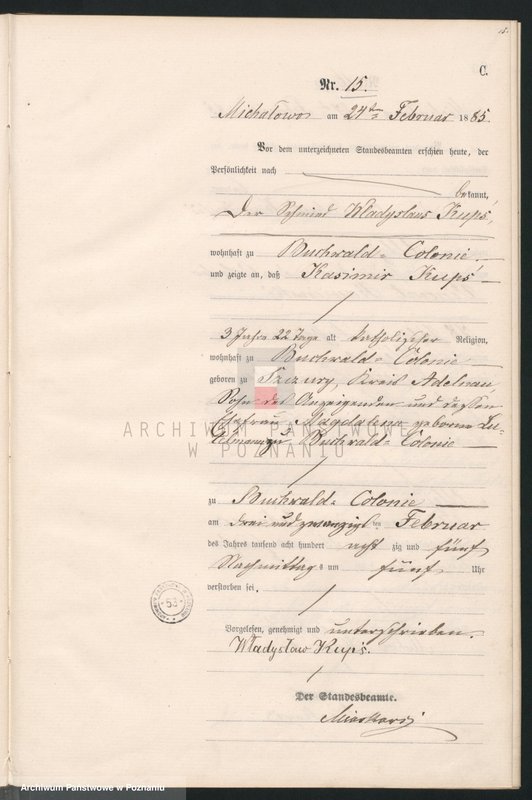 15.
C.
Nr. 15.
Michałowo am 24ten Februar 1885.
Vor dem unterzeichneten Standesbeamten erschien heute, der
Persönlichkeit nach
bekannt,
Der Schmied Wladyslaus Kupś,
wohnhaft zu Buchwald-Colonie.
und zeigte an, daß Kasimir Kupś
3 Jahre 22 Tage alt katholischer Religion,
wohnhaft zu Buchwald-Colonie
geboren zu Szczury, Kreis Adelnau,
Sohn des Anzeigenden und dessen
Ehefrau Magdalena geborene
zu Buchwald-Colonie
ARCHIWUM PAŃSTWOWE
W POZNANIU
zu Buchwald-Colonie
am drei und zwanzigsten Februar
des Jahres tausend acht hundert acht zig und fünf
Nachmittags um fünf Uhr
verstorben sei.
Vorgelesen, genehmigt und unterschrieben.
Władysław Kupś.
Der Standesbeamte.
Archiwum Państwowe w Poznaniu